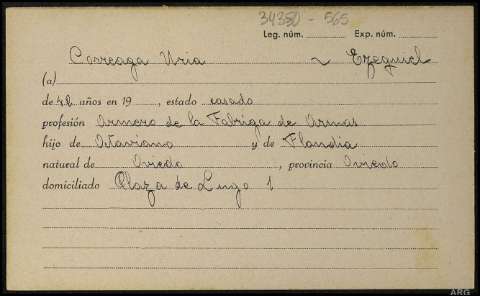 34380 - 565
Leg. núm. Exp. núm.
Correaga Uria ~ Ezequiel
(a)
de 42 años en 19 , estado casado
profesión Armero de la Fabriga de Armas
hijo de Octaviano y de Flandia
natural de Oviedo , provincia Oviedo
domiciliado Plaza de Lugo 1
ARG